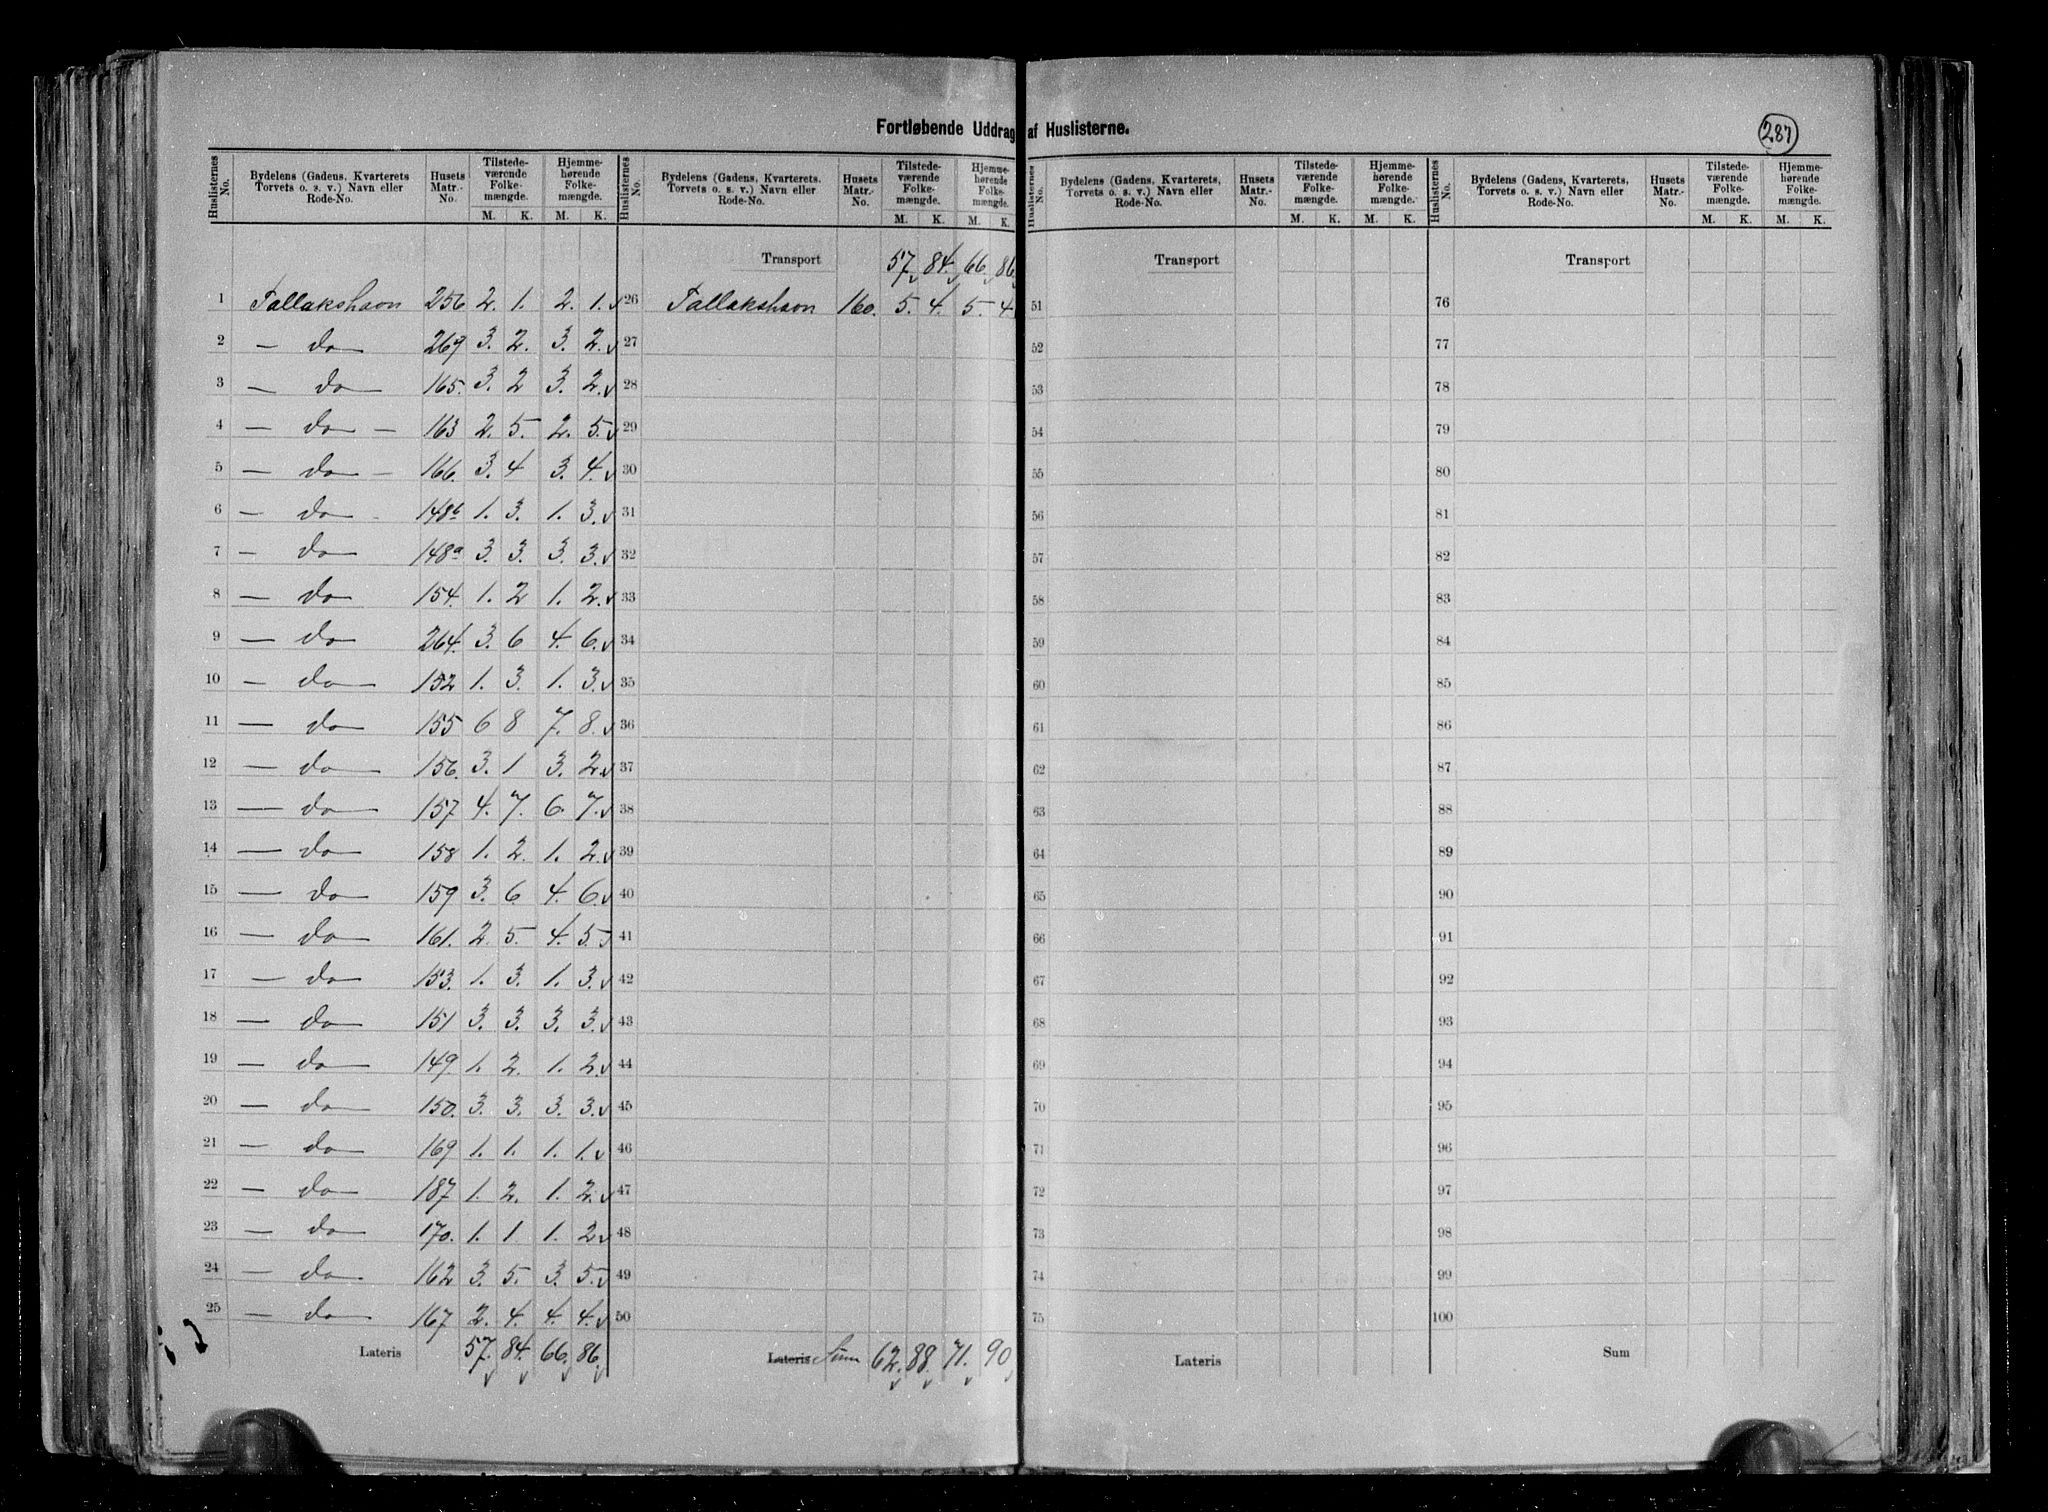 Fortløbende Uddrag af Huslisterne.
287
Huslisternes No. Bydelens (Gadens, Kvarterets Torvets o. s. v.) Navn eller Rode-No. Husets Matr.-No. Tilstede-værende Folke-mængde. M. K. Hjemme-hørende Folke-mængde. M. K.
Huslisternes No. Bydelens (Gadens, Kvarterets, Torvets o. s. v.) Navn eller Rode-No. Husets Matr.-No. Tilstede-værende Folke-mængde. M. K. Hjemme-hørende Folke-mængde. M. K.
Huslisternes No. Bydelens (Gadens, Kvarterets, Torvets o. s. v.) Navn eller Rode-No. Husets Matr.-No. Tilstede-værende Folke-mængde. M. K. Hjemme-hørende Folke-mængde. M. K.
Huslisternes No. Bydelens (Gadens, Kvarterets, Torvets o. s. v.) Navn eller Rode-No. Husets Matr.-No. Tilstede-værende Folke-mængde. M. K. Hjemme-hørende Folke-mængde. M. K.
Transport 57 84. 66. 86 Transport Transport
1 Tallakshavn 256 2. 1. 2. 1. 26 Tallakshavn 160. 5. 4. 5. 4 51 76
2 — do — 269 3. 2. 3. 2. 27 52 77
3 — do — 165. 3. 2 3. 2. 28 53 78
4 — do — 163 2. 5. 2. 5. 29 54 79
5 — do — 166. 3. 4 3. 4. 30 55 80
6 — do - 148b 1. 3. 1. 3. 31 56 81
7 — do — 148a 3. 3. 3. 3. 32 57 82
8 — do — 154. 1. 2 1. 2. 33 58 83
9 — do — 264. 3. 6 4. 6. 34 59 84
10 — do — 152 1. 3. 1. 3. 35 60 85
11 — do — 155 6 8 7. 8. 36 61 86
12 — do — 156. 3. 1 3. 2. 37 62 87
13 — do — 157 4. 7. 6. 7. 38 63 88
14 — do — 158 1. 2. 1. 2. 39 64 89
15 — do — 159 3. 6. 4. 6. 40 65 90
16 — do — 161. 2. 5. 4. 5. 41 66 91
17 — do — 153. 1. 3. 1. 3. 42 67 92
18 — do — 151 3. 3. 3. 3. 43 68 93
19 — do — 149. 1. 2. 1. 2. 44 69 94
20 — do — 150. 3. 3. 3. 3. 45 70 95
21 — do — 169 1. 1. 1. 1. 46 71 96
22 — do — 187 1. 2. 1. 2. 47 72 97
23 — do — 170. 1. 1 1. 2. 48 73 98
24 — do — 162 3. 5. 3. 5. 49 74 99
25 — do — 167 2. 4. 4. 4. 50 75 100
Lateris 57. 84. 66. 86. Lateris Sum 62. 88. 71. 90 Lateris Sum